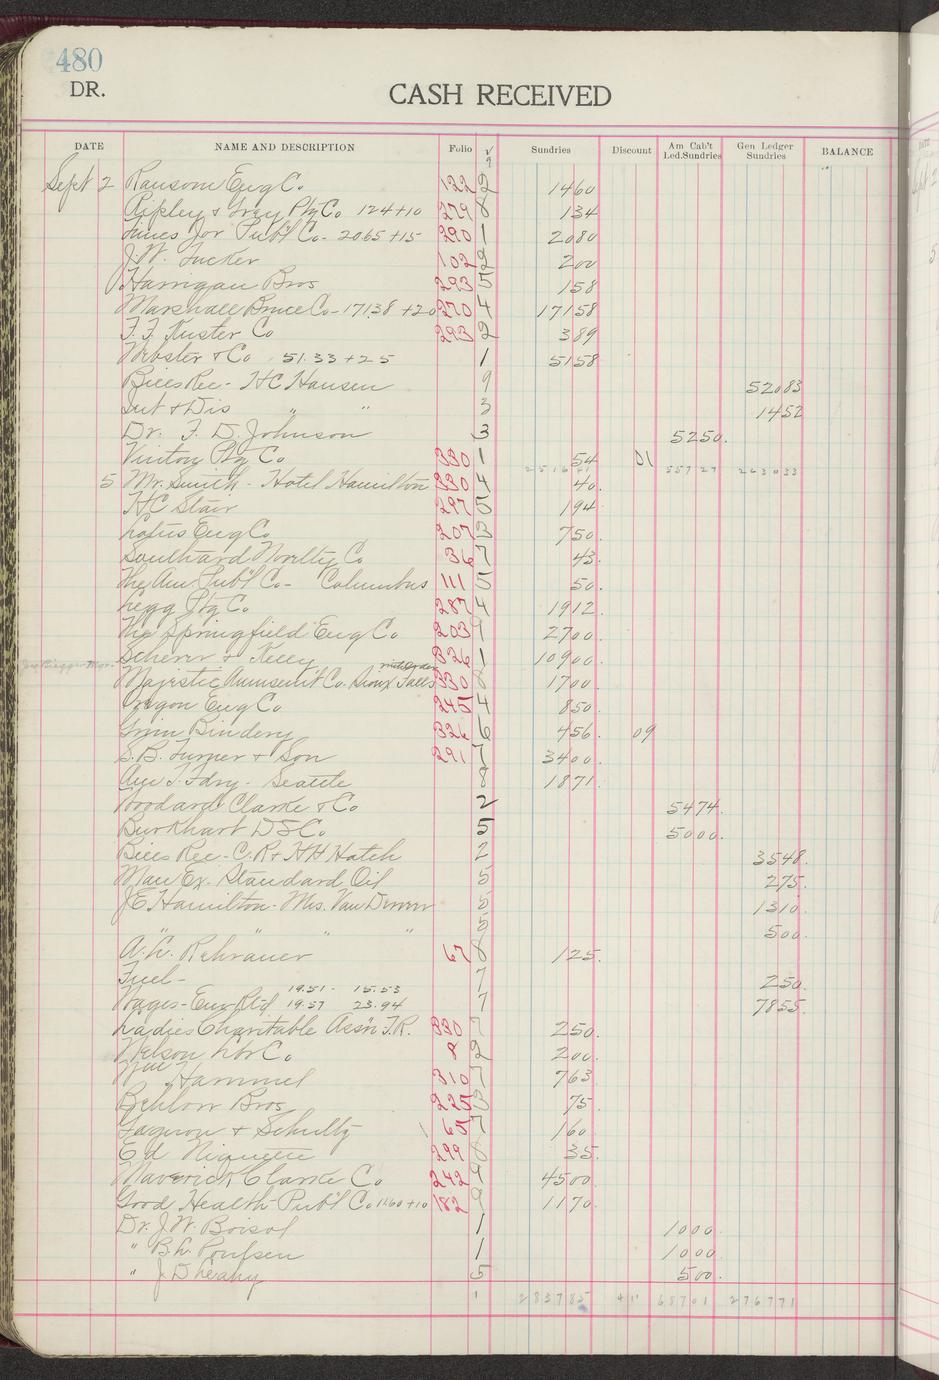 480
DR.
CASH RECEIVED
DATE NAME AND DESCRIPTION Folio √ Sundries Discount Am Cab't Led.Sundries Gen Ledger Sundries BALANCE
Sept 2 Ransom Eng Co. 122 2 1460
Ripley & Gray Ptg Co 124+10 279 8 134
Times Jor Publ Co- 2065+15 290 1 2080
J.W. Tucker 102 2 200
Harrigan Bros 293 5 158
Marshall Bruce Co-17138+20 270 4 17158
F.F. Kuster Co 293 2 389
Webster & Co 51.33+25 1 5158
Bills Rec- HC Hansen 9 52083
Int & Dis " " 3 1452
Dr. F. D. Johnson 3 5250.
Vinton Ptg Co 330 1 54 01
55727 263033
5 Mr. Smith- Hotel Hamilton 330 4 40.
HC Stair 297 5 194
Loftus Eng Co 207 3 750.
Southard Novelty Co 36 7 43.
The Am. Publ Co- Columbus 111 5 50.
Legg Ptg Co 287 4 1912.
The Springfield Eng Co 203 9 2700.
Scherer & Kelly 326 1 10900.
Majestic Amusemt Co. Sioux Falls 330 8 1700.
Oregon Eng Co 245 4 850.
Grim Bindery 326 6 456. 09
S.B. Turner & Son 291 7 3400.
Am T. Fdry- Seattle 8 1871.
Woodard Clarke & Co 2 5474.
Burkhart DS Co. 5 5000.
Bills Rec- C.R & HH Hatch 2 3548.
Man Ex- Standard Oil 5 275.
J E Hamilton- Mrs. Van Deuren 5 1310.
" " " 5 500.
A. L. Rehrauer 67 8 125.
Fuel- 7 250.
19.51- 15.53
Wages- Eng Rtd 19.57 23.94 7 7855.
Ladies Charitable Ass'n T.R. 330 7 250.
Nelson Lbr Co. 8 2 200.
Wm Hammel 310 7 763
Behlow Bros 225 3 75.
Gagnon & Schultz 65 7 160.
Ed Niquette 299 8 35.
Maverick Clarke Co 242 9 4500.
Good Health Publ Co. 1160+10 182 9 1170.
Dr. J.W. Boisol 1 1000.
" B.L. Poulsen 1 1000.
" J D Leahy 5 500.
283785 68701 276771